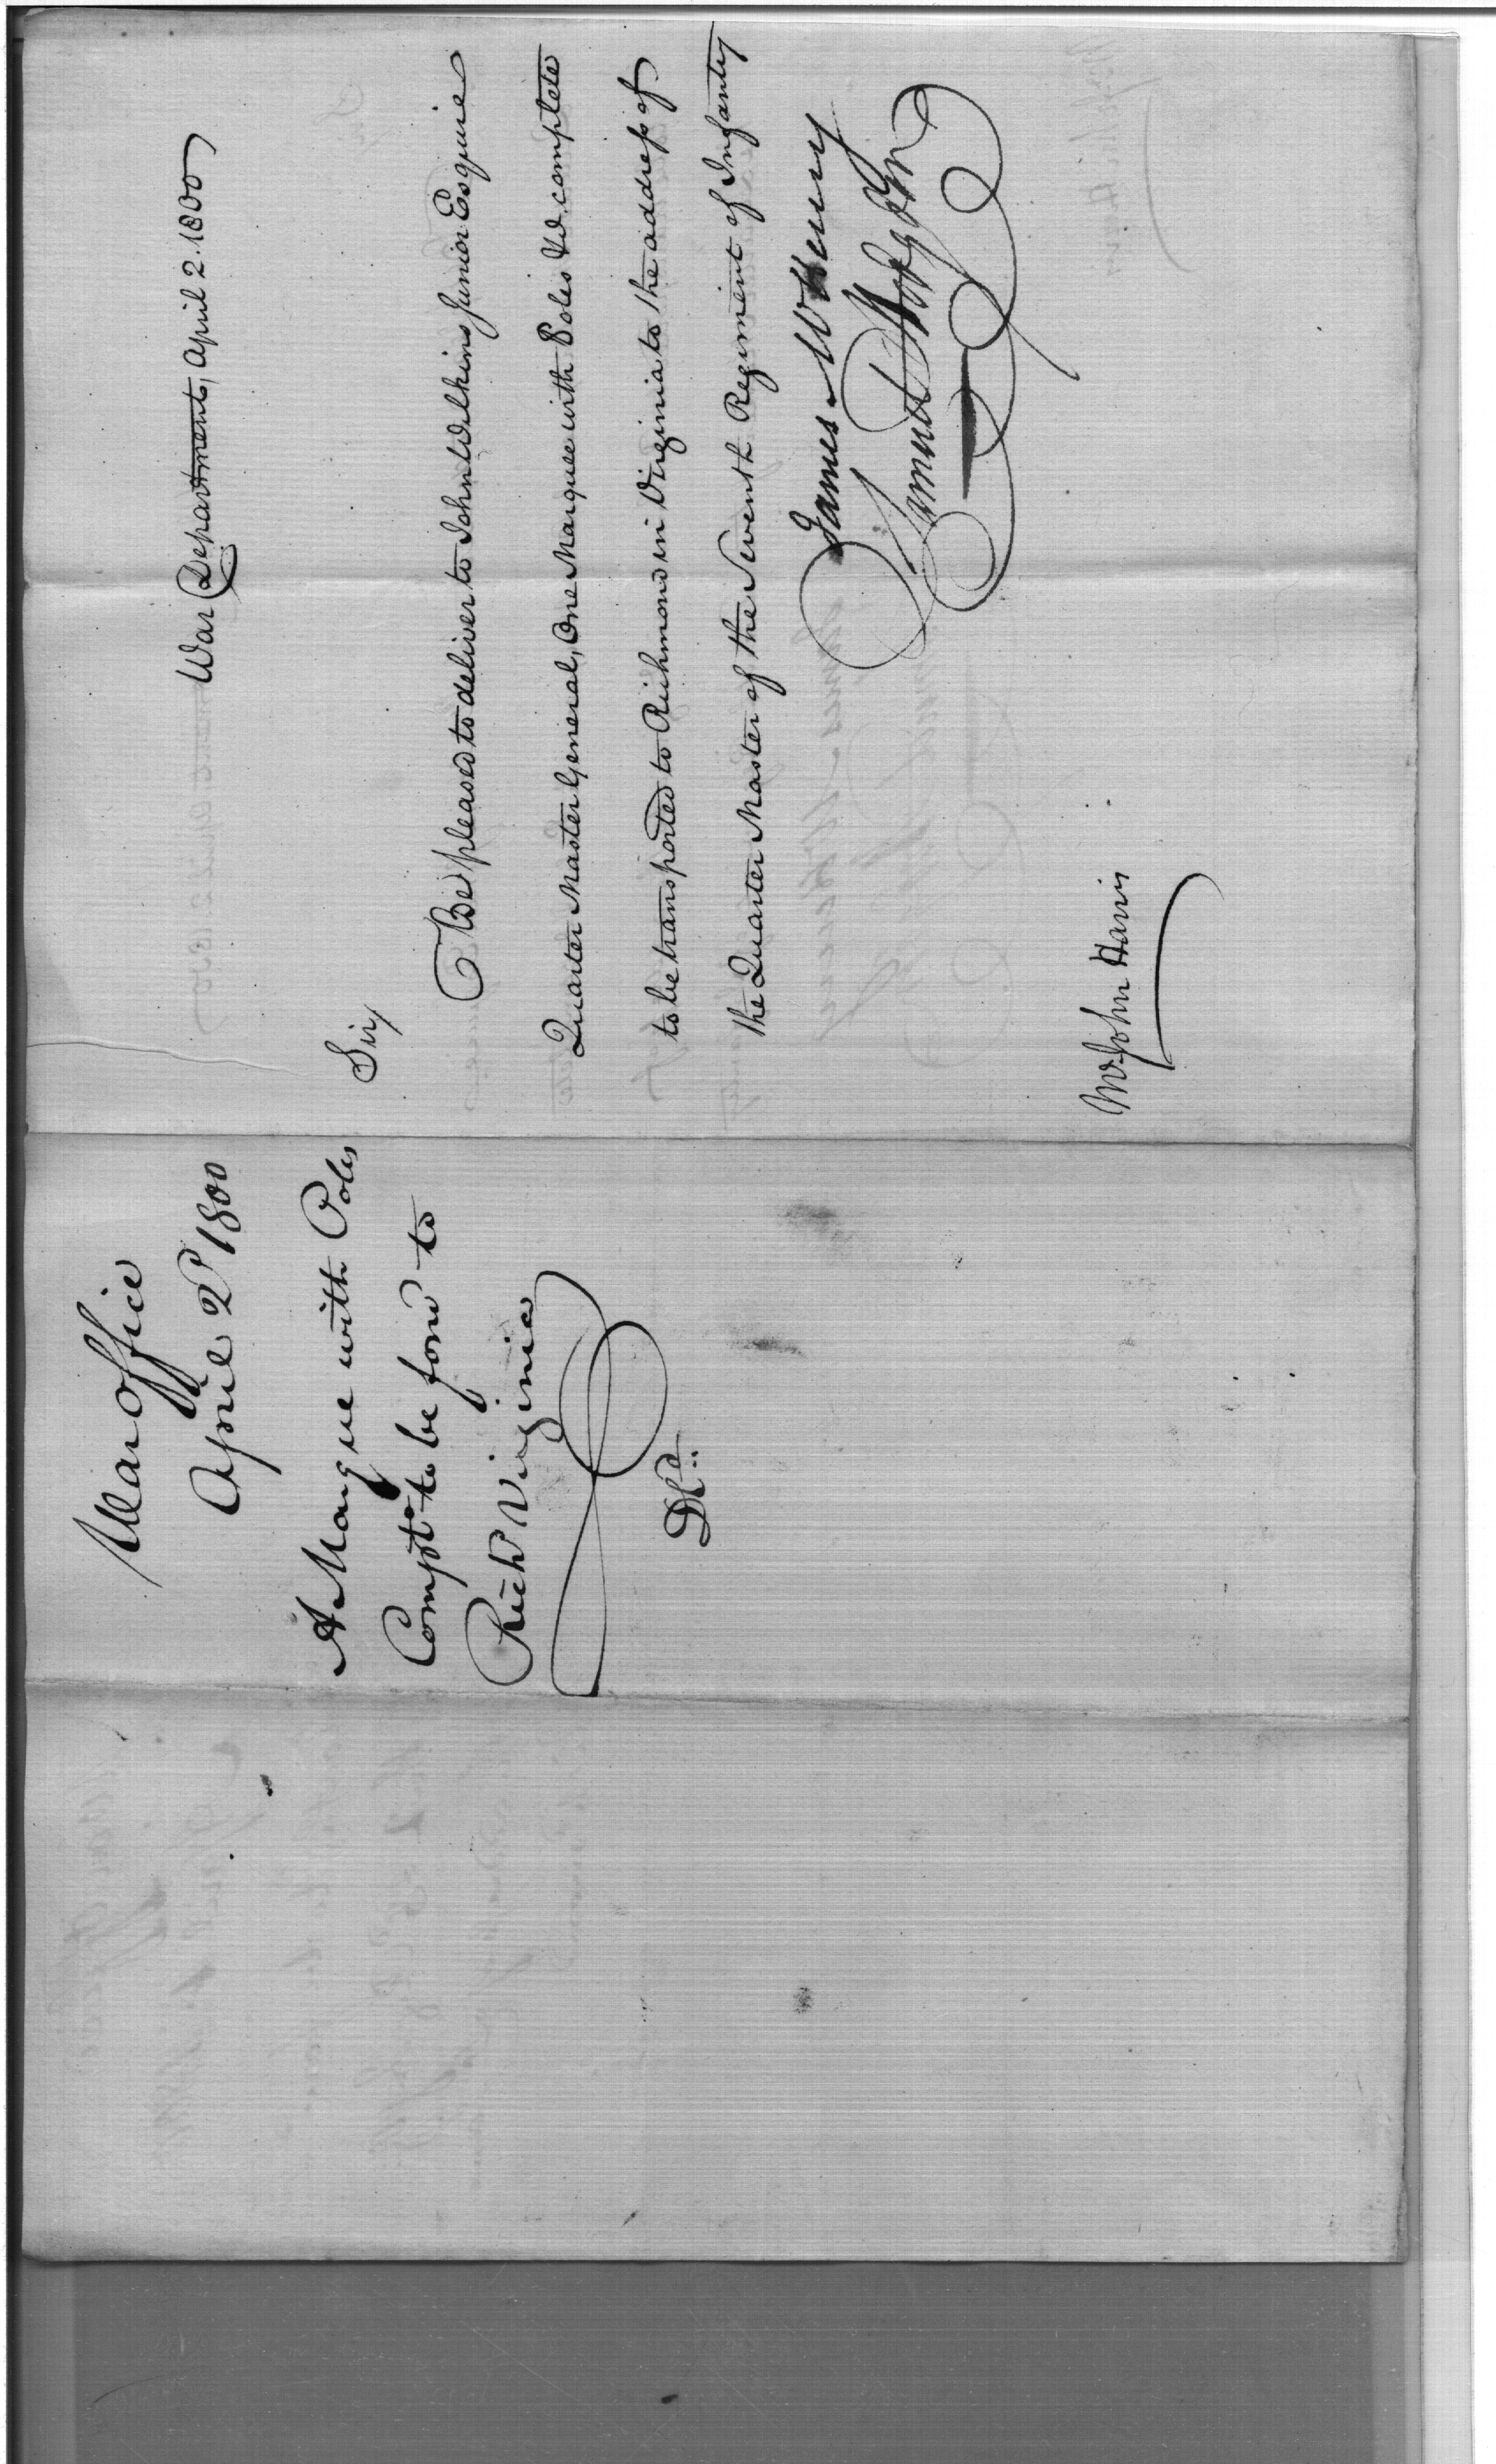 War Department, April 2. 1800
Sir,
Be pleased to deliver to John Wilkins Junior Esquire
Quarter Master General, One Marquee with Poles &c. complete
to be transported to Richmond in Virginia to the address of
the Quarter Master of the Seventh Regiment of Infantry
James McHenry
Samuel Hodgdon
Mr. John Harris
War Office
April 2d 1800
A Marque with Poles
Compt. to be ford to
Rich Virginia
Dd.